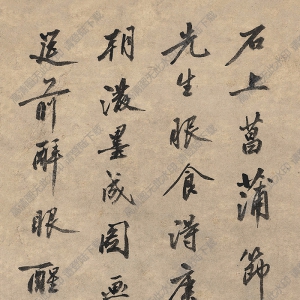 石上菖蒲節
先生眠食得康
朝潑墨成圖画
筵前醉眼醒